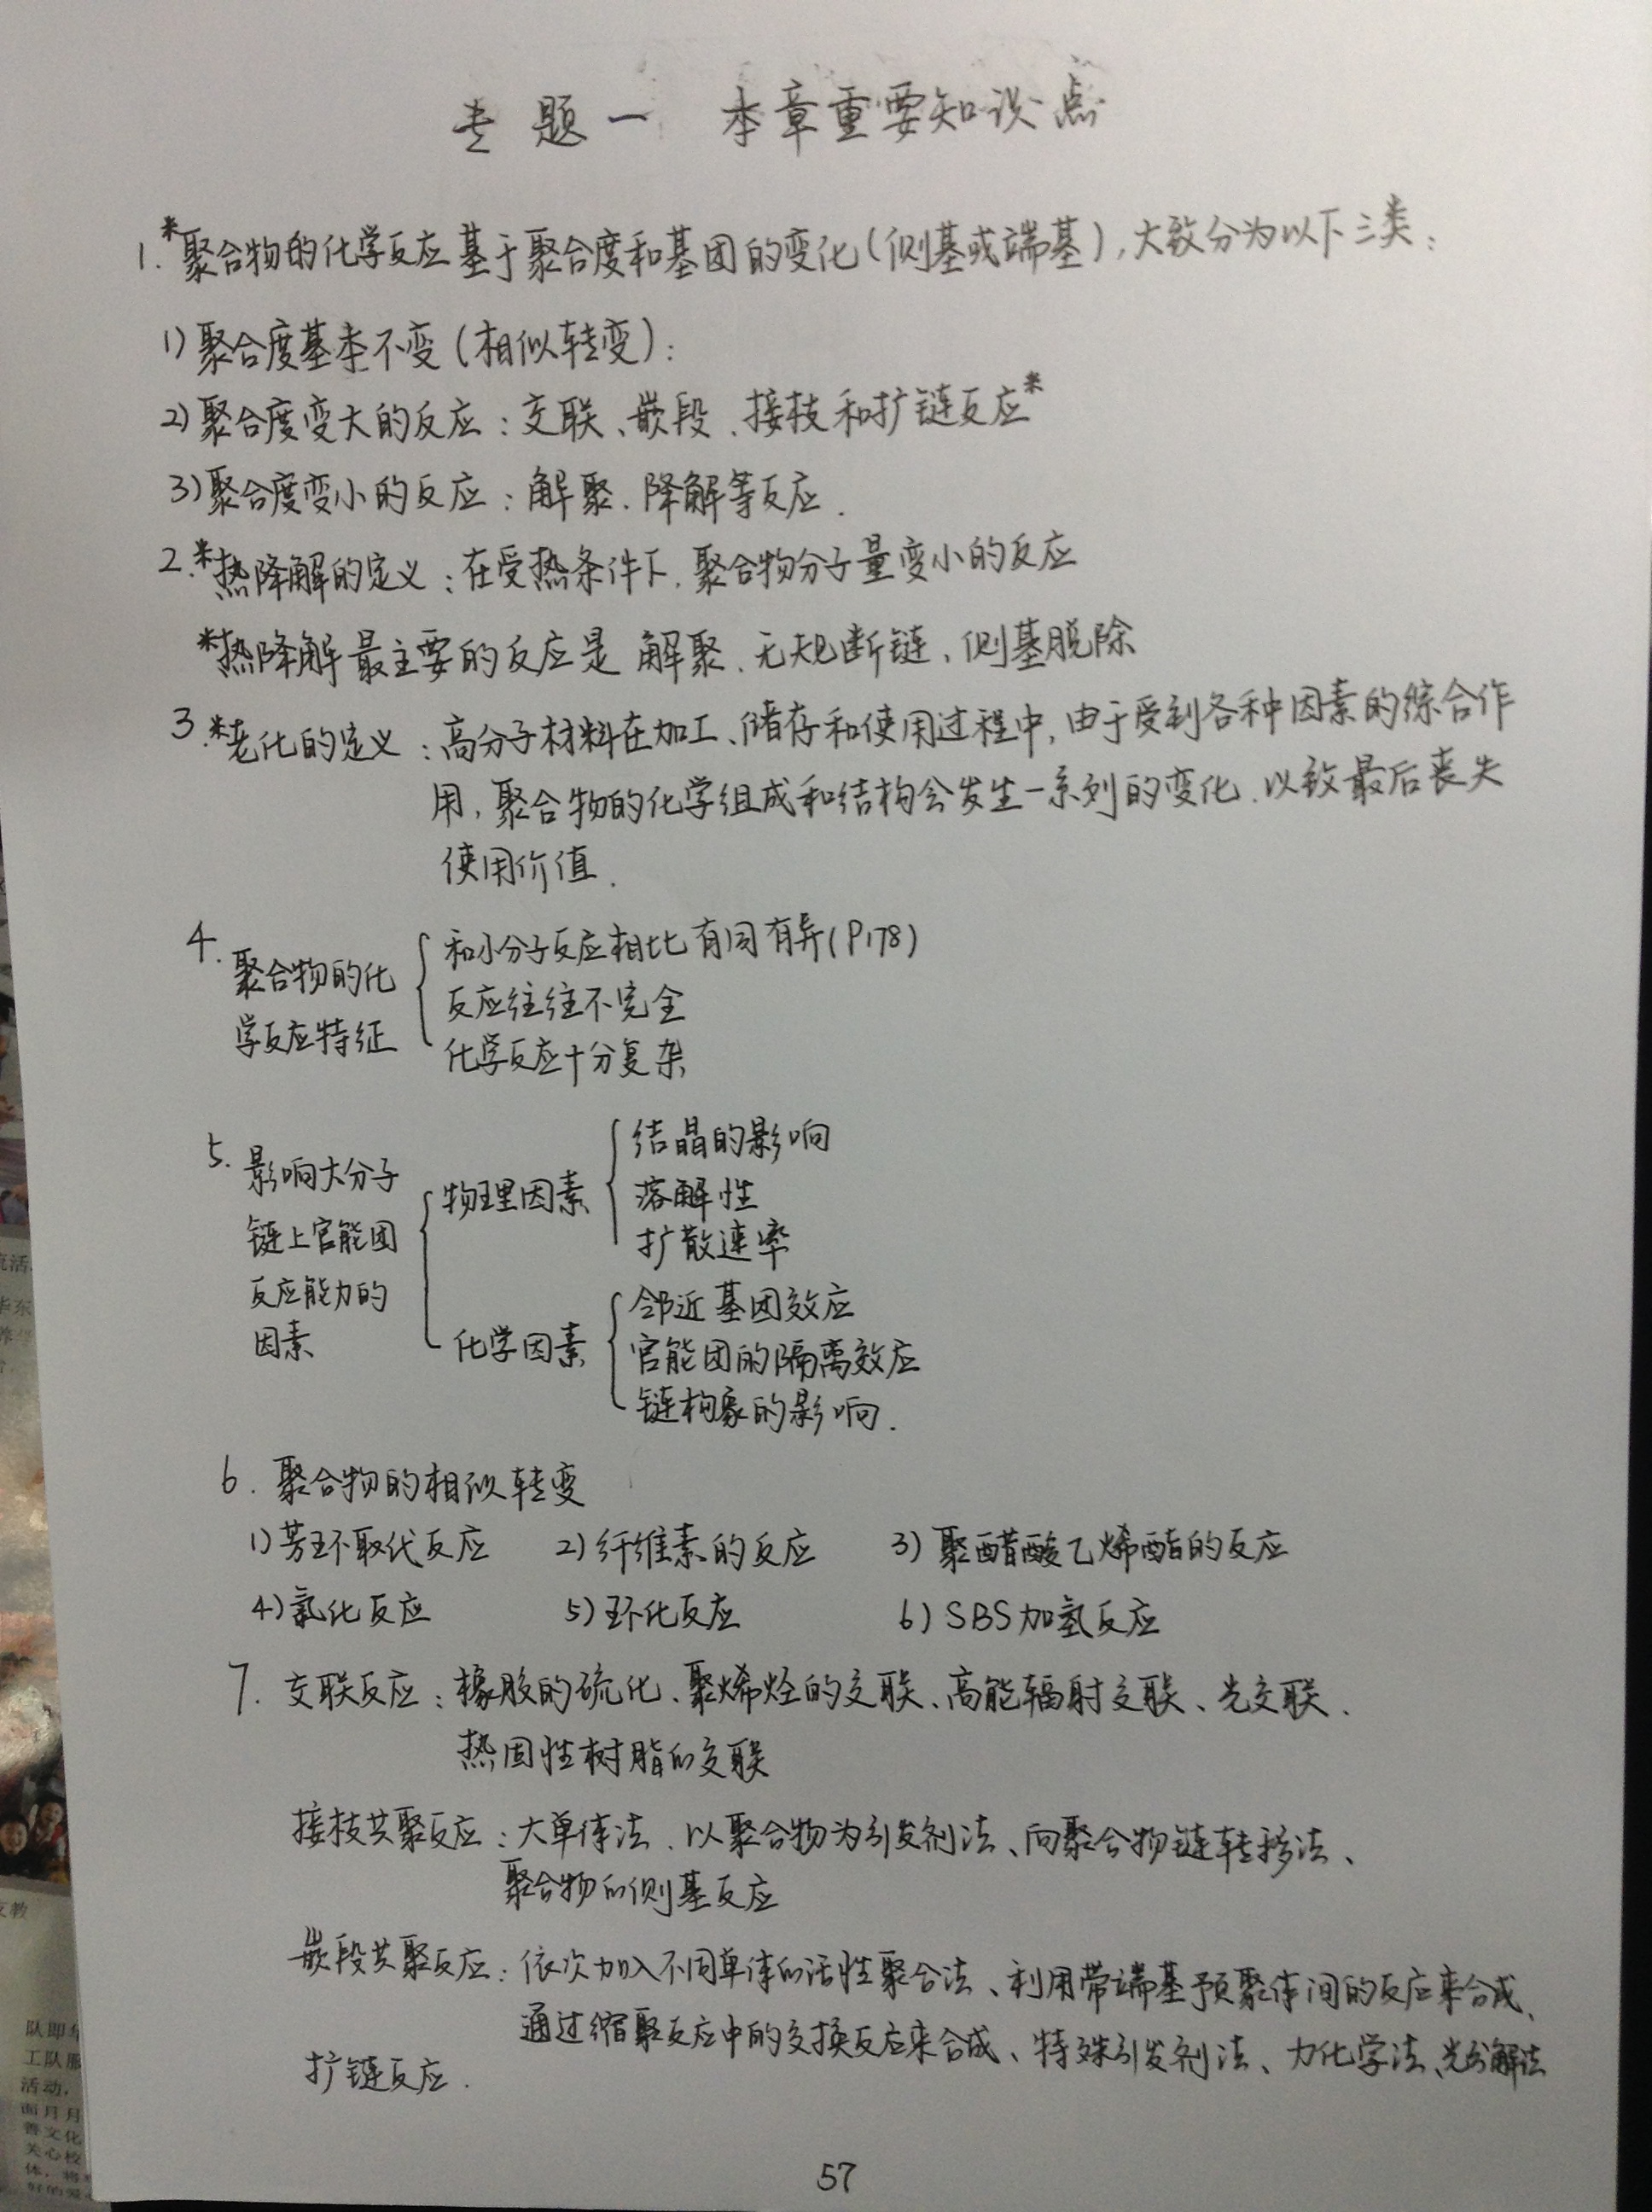 专题一 本章重要知识点
1.*聚合物的化学反应基于聚合度和基团的变化(侧基或端基),大致分为以下三类:
1)聚合度基本不变(相似转变):
2)聚合度变大的反应:交联、嵌段、接枝和扩链反应*
3)聚合度变小的反应:解聚、降解等反应.
2.*热降解的定义:在受热条件下,聚合物分子量变小的反应
*热降解最主要的反应是 解聚、无规断链、侧基脱除
3.*老化的定义:高分子材料在加工、储存和使用过程中,由于受到各种因素的综合作
用,聚合物的化学组成和结构会发生一系列的变化,以致最后丧失
使用价值.
4.聚合物的化
学反应特征
和小分子反应相比有同有异(P178)
反应往往不完全
化学反应十分复杂
5.影响大分子
链上官能团
反应能力的
因素
物理因素
结晶的影响
溶解性
扩散速率
化学因素
邻近基团效应
官能团的隔离效应
链构象的影响.
6.聚合物的相似转变
1)芳环取代反应 2)纤维素的反应 3)聚醋酸乙烯酯的反应
4)氯化反应 5)环化反应 6)SBS加氢反应
7.交联反应:橡胶的硫化、聚烯烃的交联、高能辐射交联、光交联、
热固性树脂的交联
接枝共聚反应:大单体法、以聚合物为引发剂法、向聚合物链转移法、
聚合物的侧基反应
嵌段共聚反应:依次加入不同单体的活性聚合法、利用带端基预聚体间的反应来合成、
通过缩聚反应中的交换反应来合成、特殊引发剂法、力化学法、光分解法
扩链反应.
57
队即
工队服
活动,
面月月
善文化
关心校
体,
好的